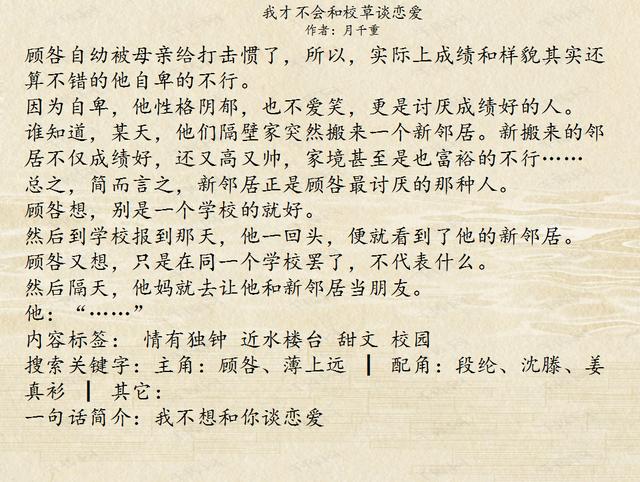 我才不会和校草谈恋爱
作者：月千重
顾咎自幼被母亲给打击惯了，所以，实际上成绩和样貌其实还
算不错的他自卑的不行。
因为自卑，他性格阴郁，也不爱笑，更是讨厌成绩好的人。
谁知道，某天，他们隔壁家突然搬来一个新邻居。新搬来的邻
居不仅成绩好，还又高又帅，家境甚至是也富裕的不行……
总之，简而言之，新邻居正是顾咎最讨厌的那种人。
顾咎想，别是一个学校的就好。
然后到学校报到那天，他一回头，便就看到了他的新邻居。
顾咎又想，只是在同一个学校罢了，不代表什么。
然后隔天，他妈就去让他和新邻居当朋友。
他：“……”
内容标签： 情有独钟 近水楼台 甜文 校园
搜索关键字：主角：顾咎、薄上远 ┃ 配角：段纶、沈滕、姜
真衫 ┃ 其它：
一句话简介：我不想和你谈恋爱